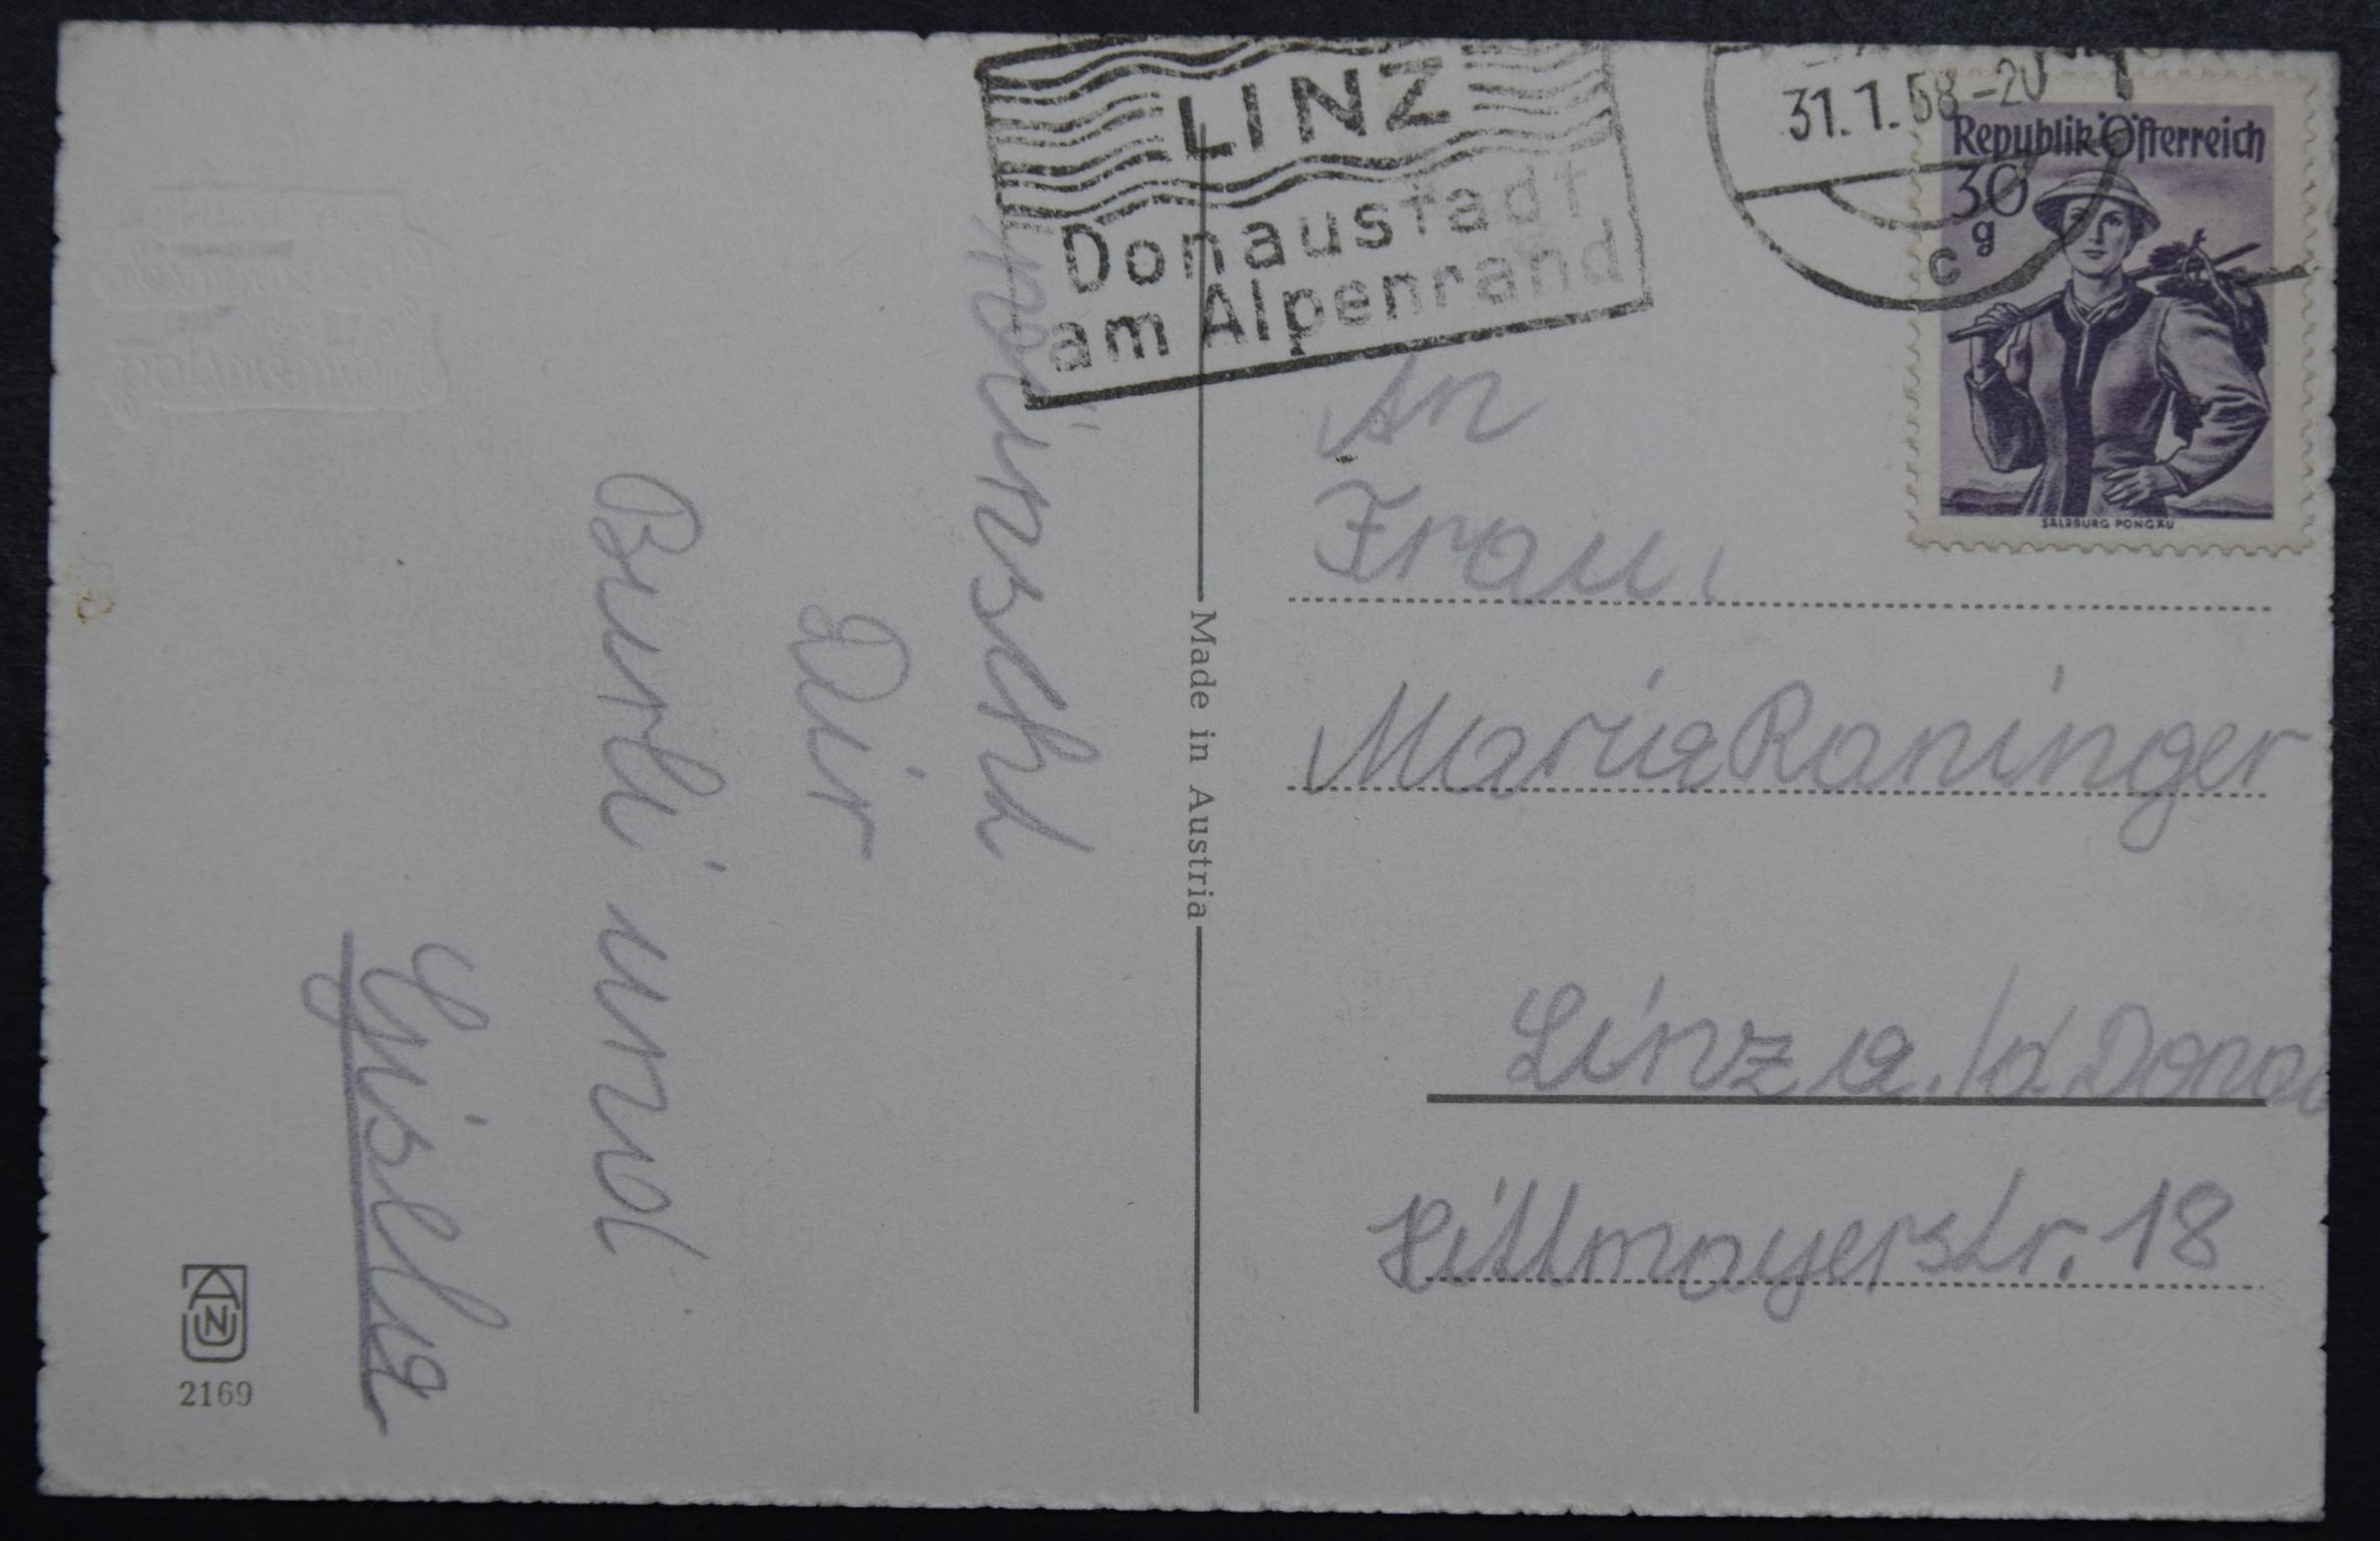 LINZ
Donaustadt
am Alpenrand
31.1.58-20
c
Republik Österreich
30
g
SALZBURG PONGAU
wünscht
Dir
Burli und
Gisela
Made in Austria
An
Frau
Maria Raninger
Linz a./d Donau
Hittmayerstr. 18
2169